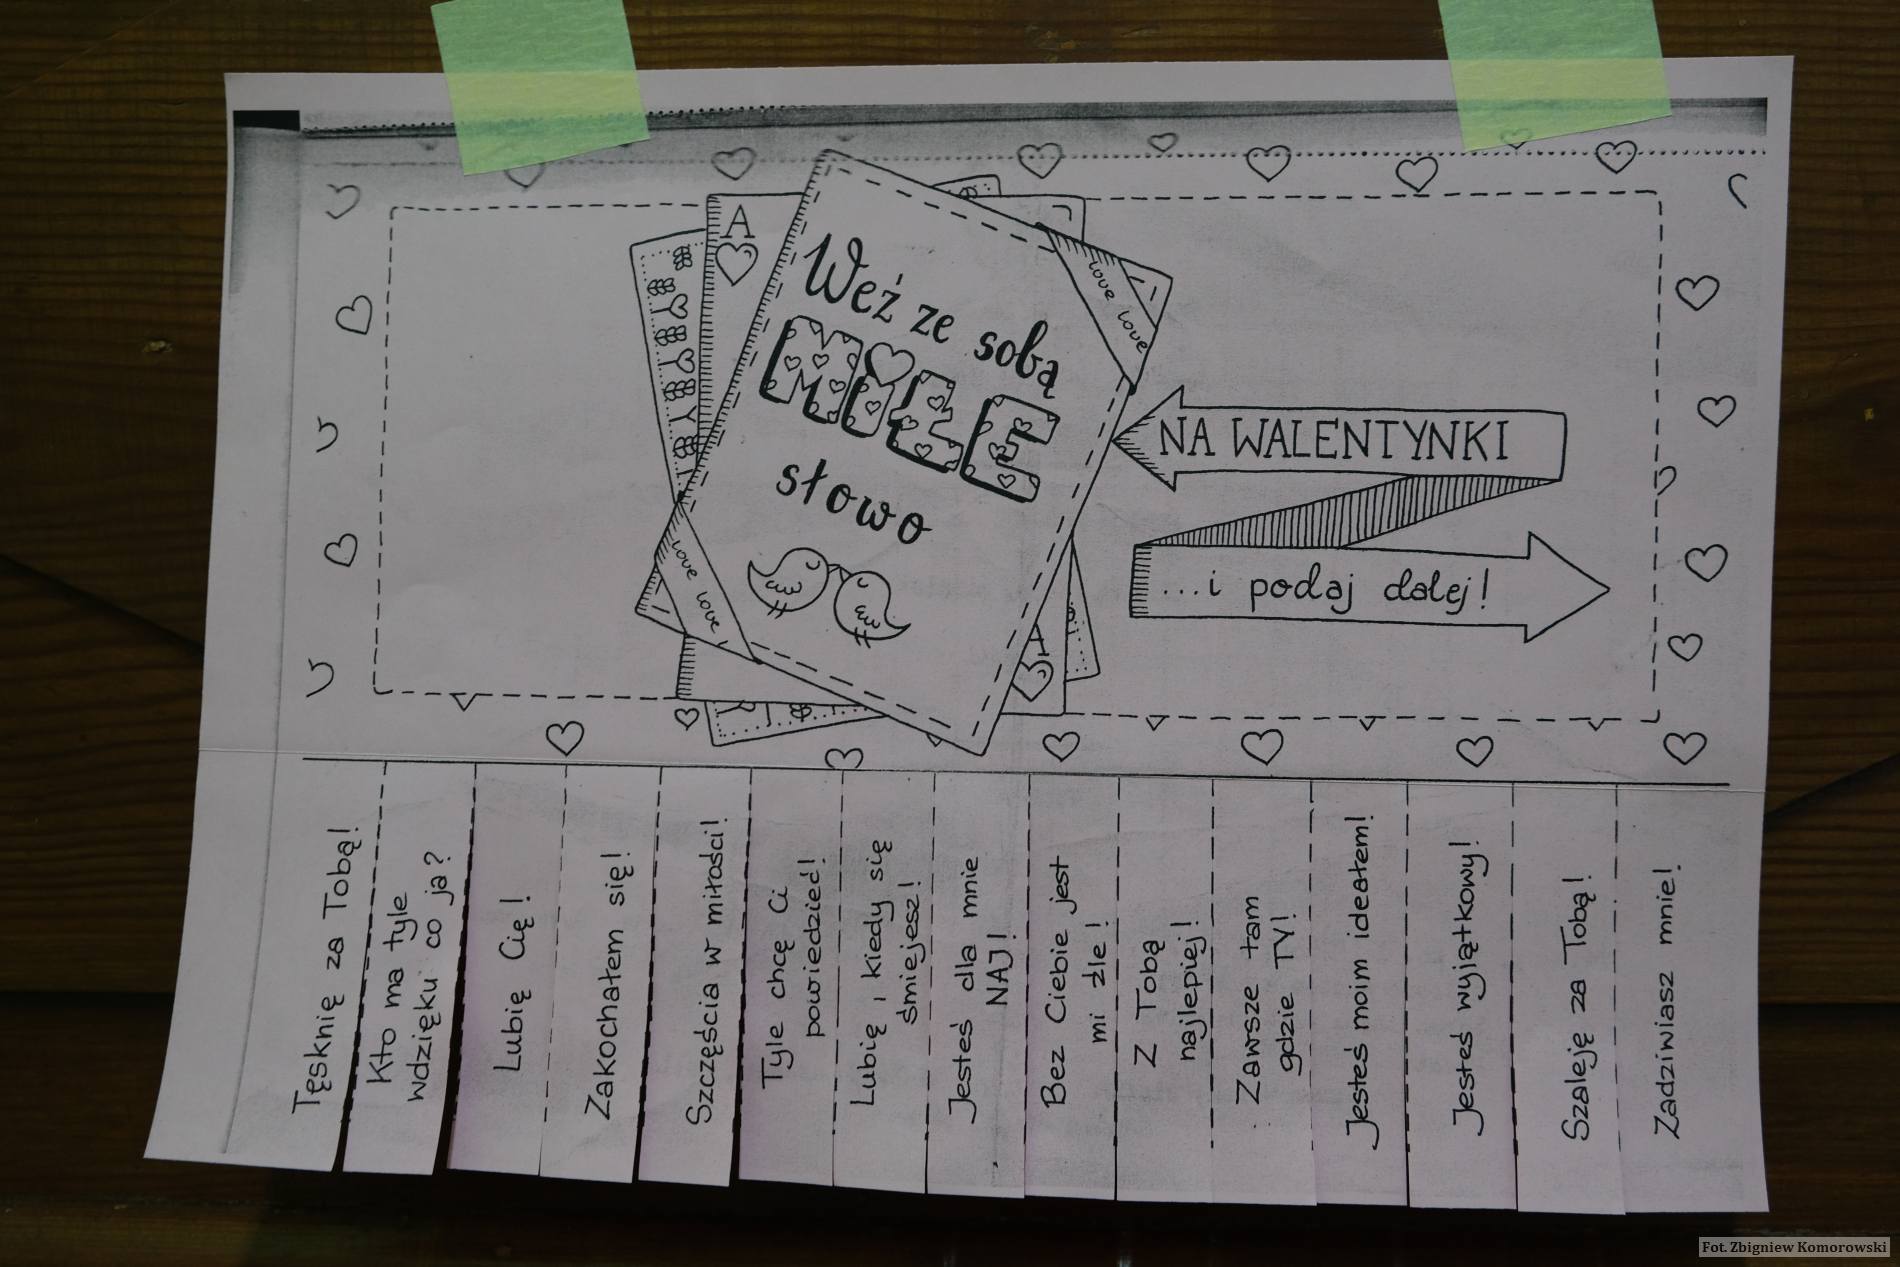 A
Weź ze sobą
MIŁE
słowo
love love
love love!
NA WALENTYNKI
...i podaj dalej!
A
Tęsknię za Tobą!
Kto ma tyle
wdzięku co ja?
Lubię Cię!
Zakochałem się!
Szczęścia w miłości!
Tyle chcę Ci
powiedzieć!
Lubię i kiedy się
śmiejesz!
Jesteś dla mnie
NAJ!
Bez Ciebie jest
mi źle!
Z Tobą
najlepiej!
Zawsze tam
gdzie TY!
Jesteś moim ideałem!
Jesteś wyjątkowy!
Szaleję za Tobą!
Zadziwiasz mnie!
Fot. Zbigniew Komorowski